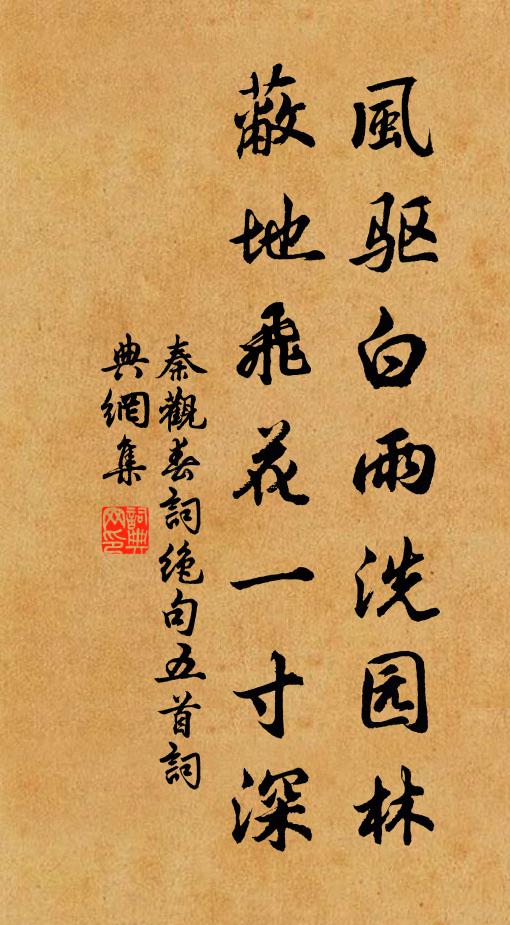 風驱白雨洗园林
蔽地飛花一寸深
秦觀春詞絶句五首詞
典網集
詞典網印